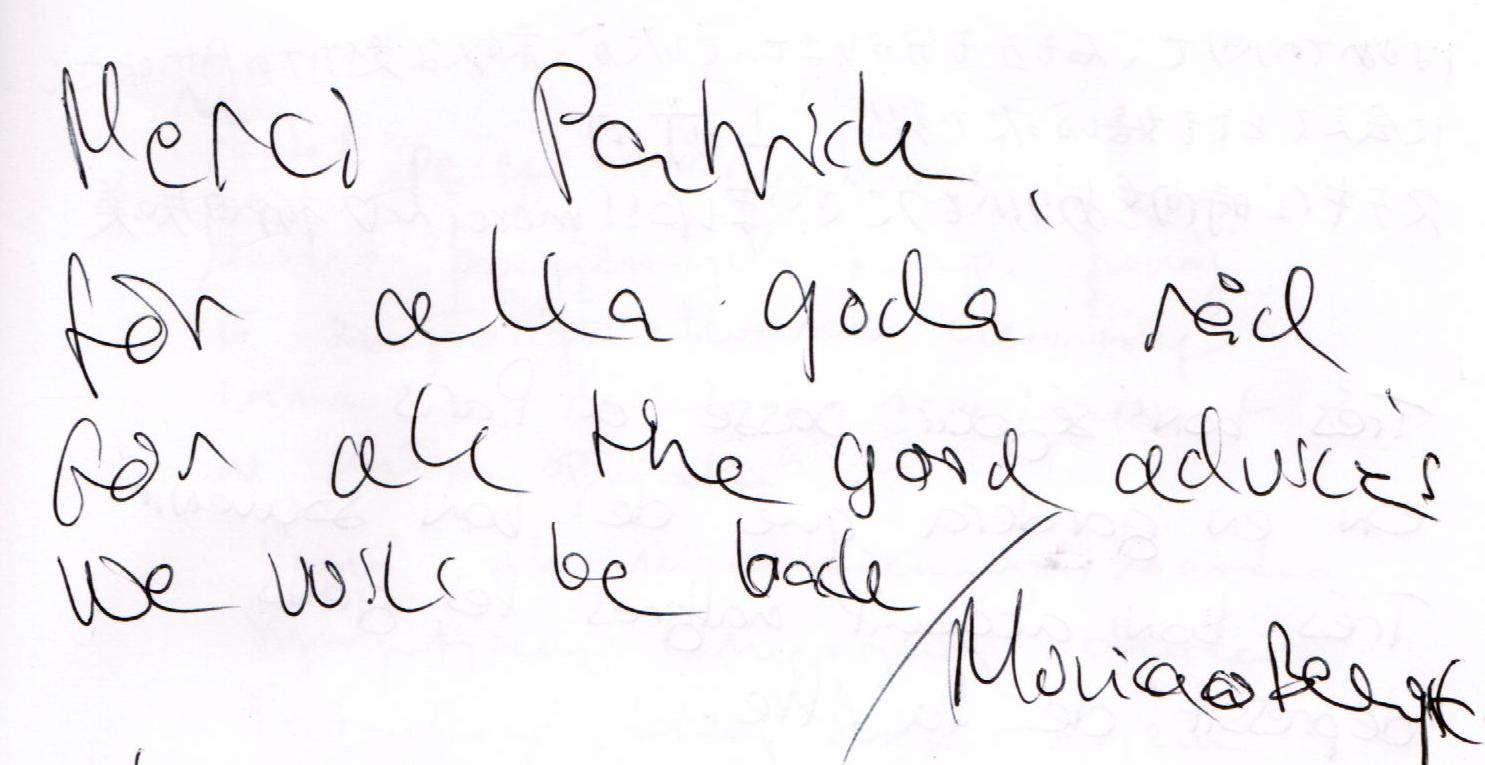 Merci Patrick,
för alla goda råd
for all the good advices
we will be back
Monica o Bengt